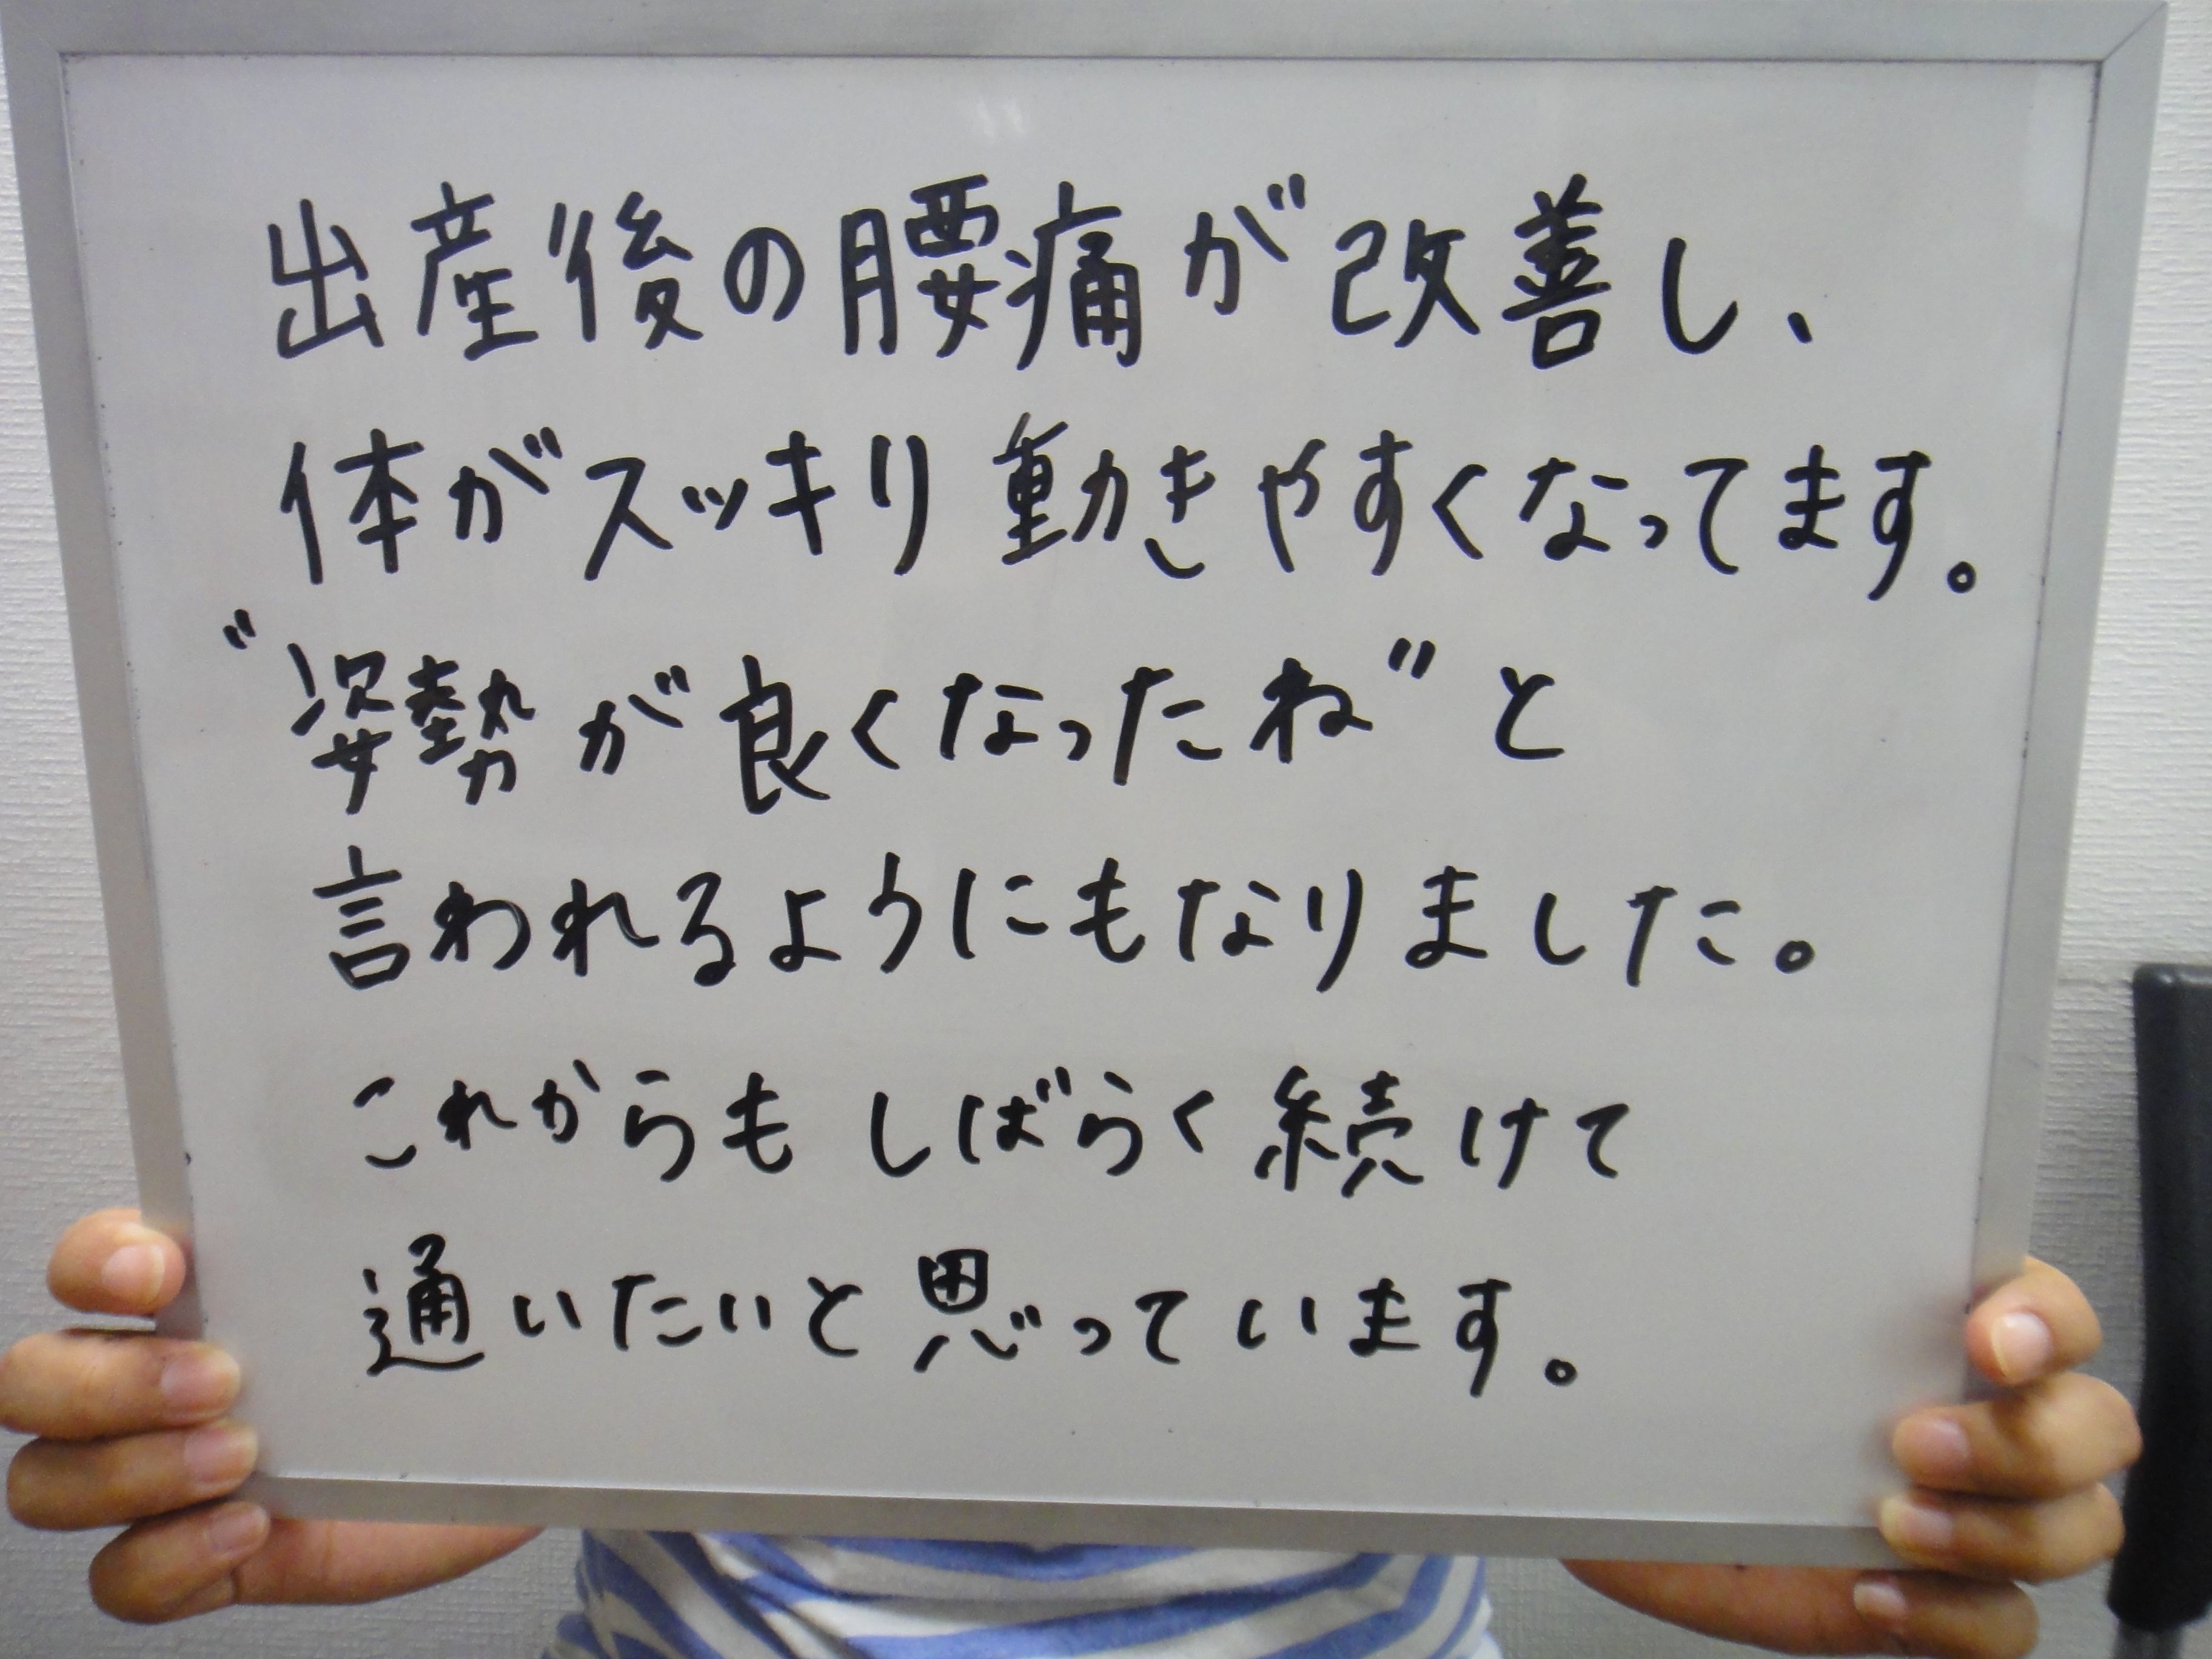 出産後の腰痛が改善し、
体がスッキリ動きやすくなってます。
“姿勢が良くなったね”と
言われるようにもなりました。
これからもしばらく続けて
通いたいと思っています。